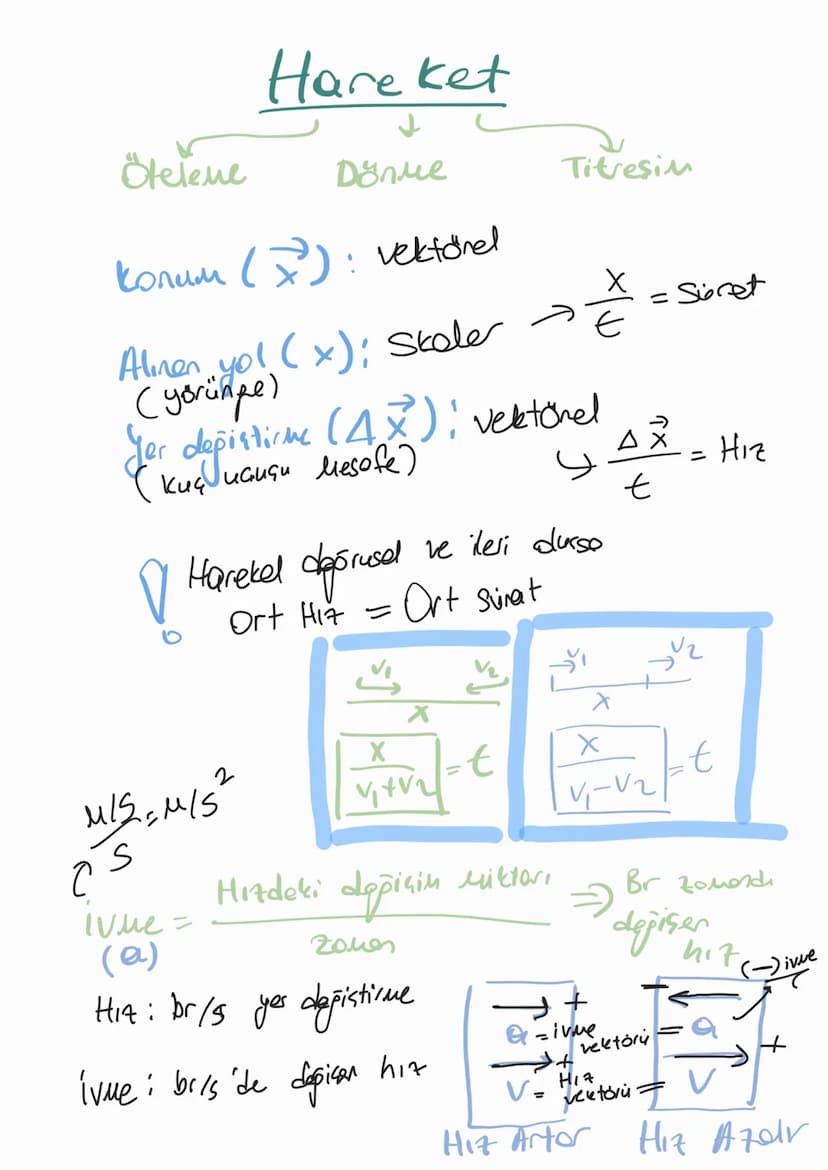 Hareket
Öteleme Dönme Titreşim
Konum (x⃗): vektörel
Alınan yol (x): Skaler → x/t = Sürat
(yörünge)
Yer değiştirme (Δx⃗): vektörel
(kuş uçuşu mesafe) ↳ Δx⃗/t = Hız
! Hareket doğrusal ve ileri olursa
Ort Hız = Ort Sürat
V1 V2
x
x/(V1+V2) = t
V1 V2
x
x/(V1-V2) = t
m/s/s = m/s²
İvme = Hızdeki değişim miktarı/zaman ⇒ Br zamanda
(a) değişen
hız
Hız: br/s yer değiştirme
İvme: br/s'de değişen hız
→ +
a = ivme vektörü = a
→ +
V = Hız vektörü = V
Hız Artar
- ← (-) ivme
→ +
Hız Azalır